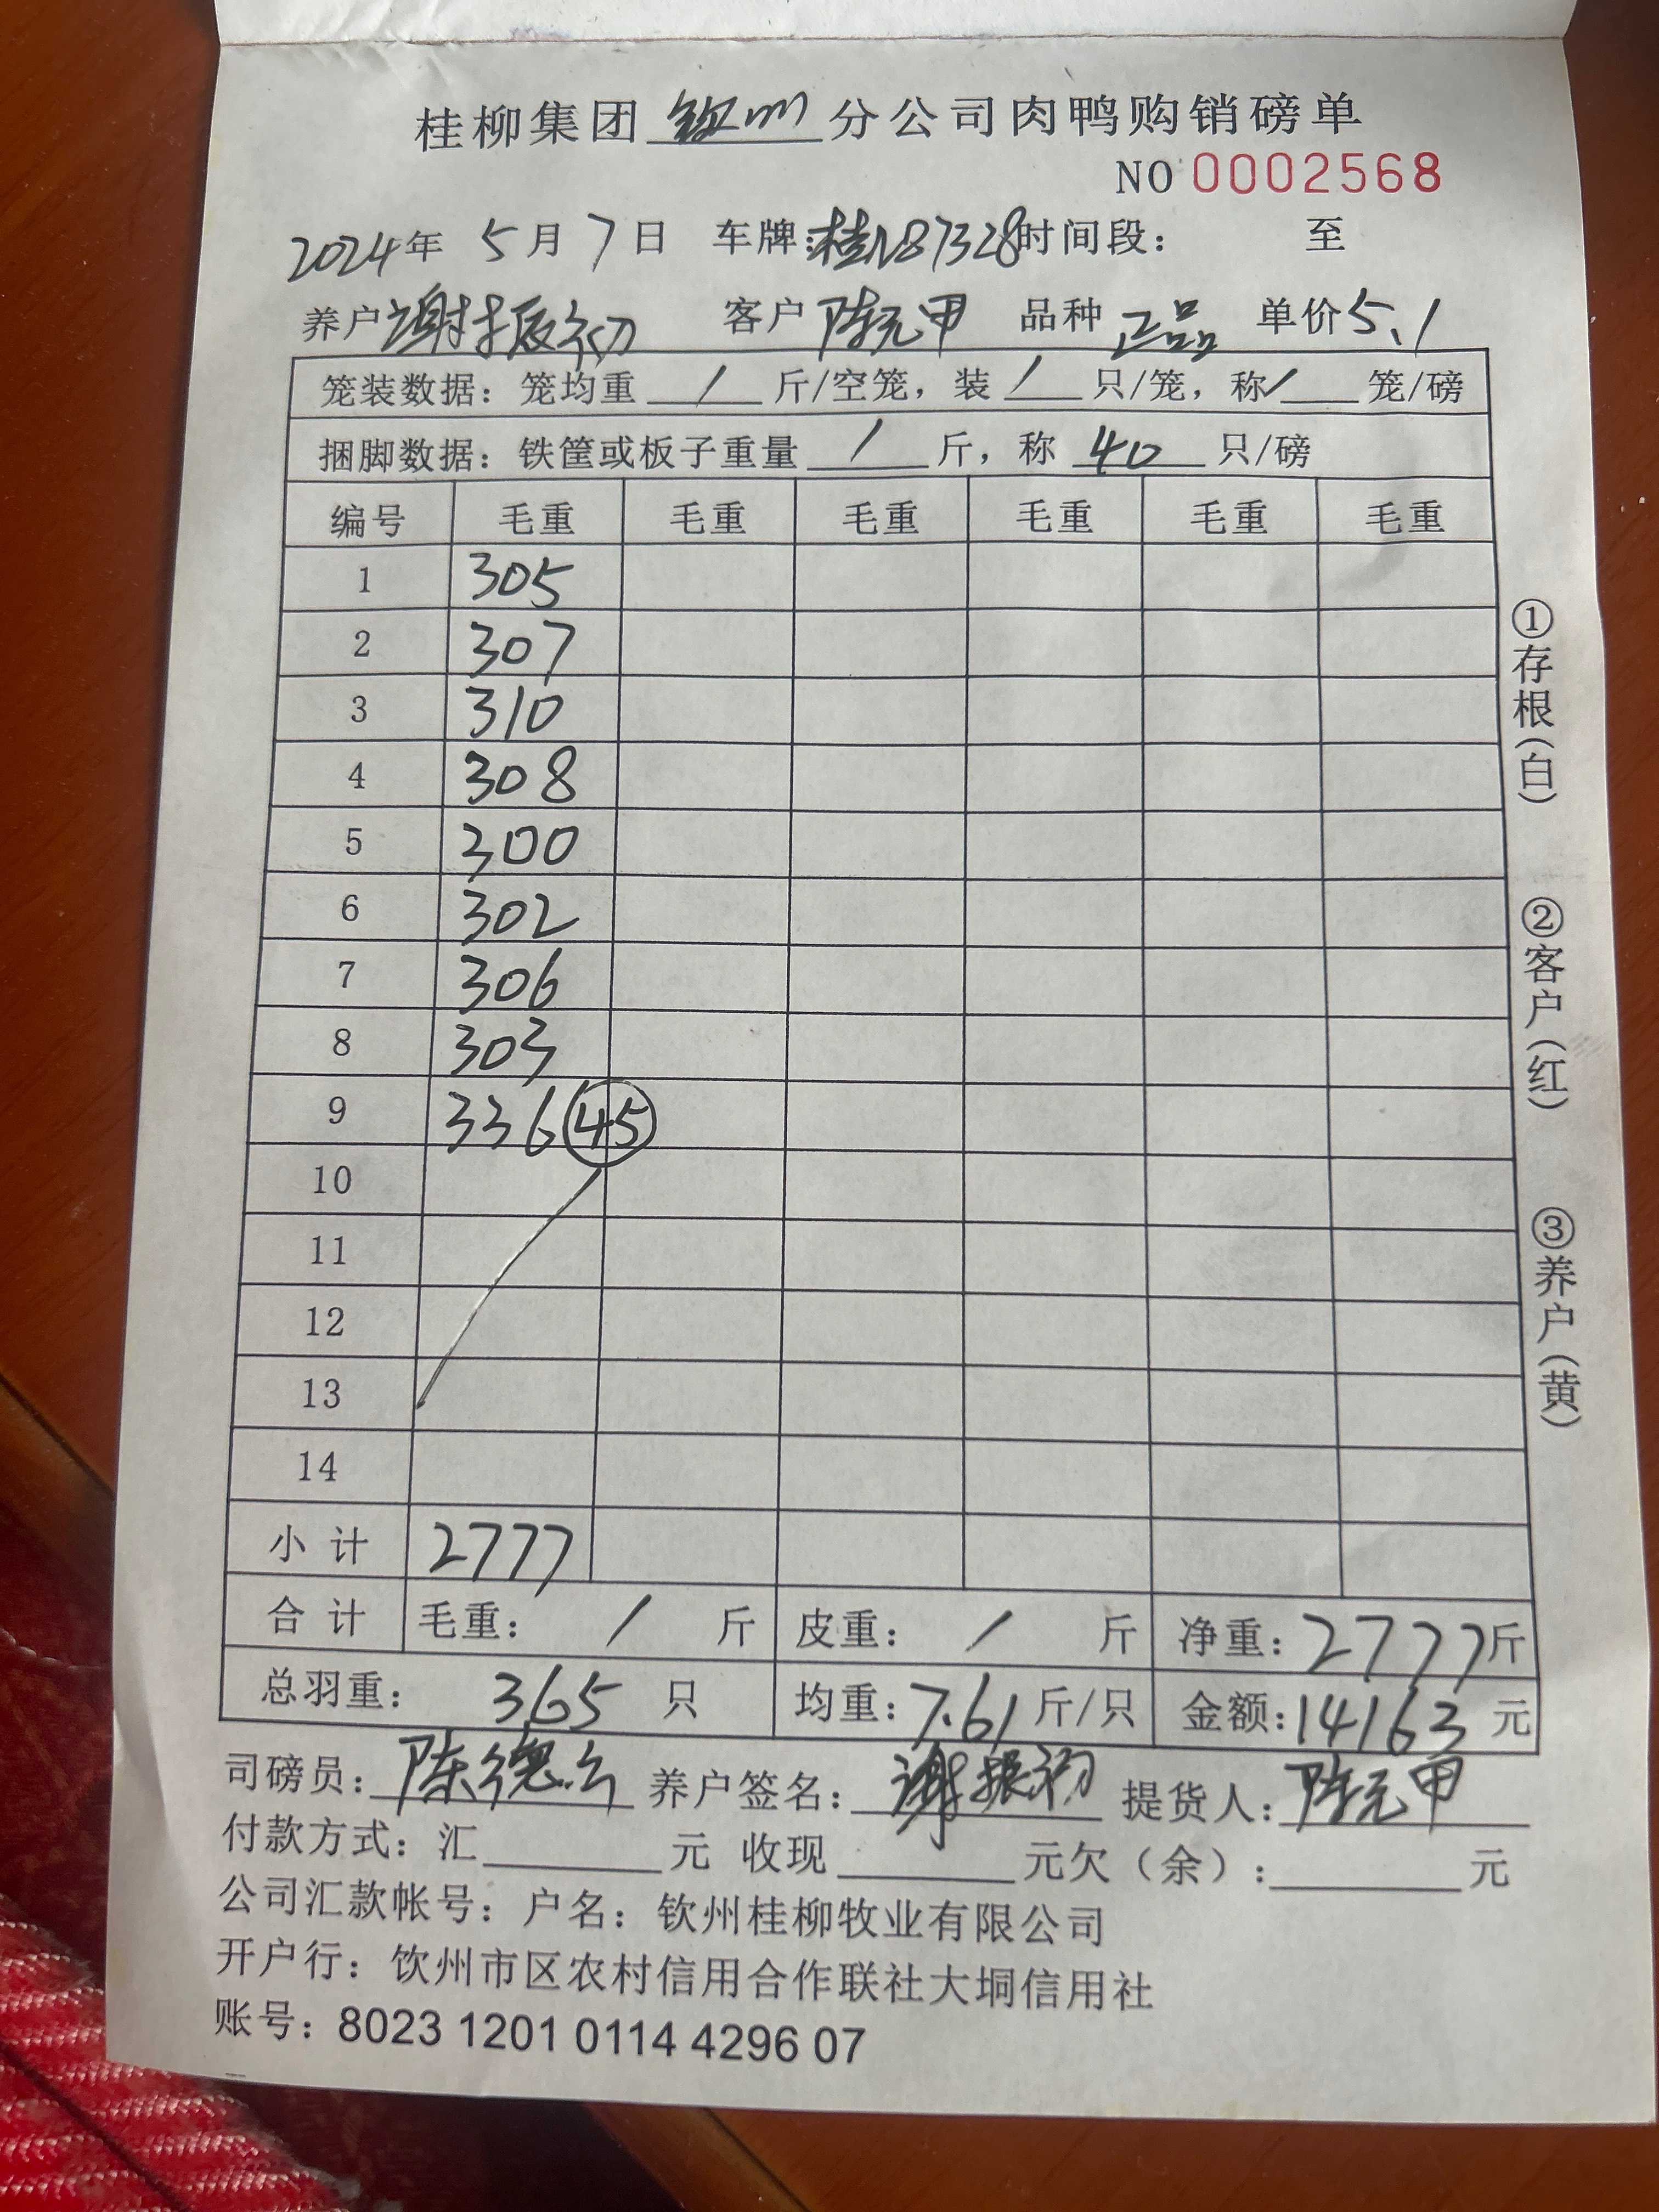 桂柳集团钦州分公司肉鸭购销磅单
NO 0002568
2024年 5月 7日 车牌:桂N87328 时间段: 至
养户 谢振初 客户 陈元甲 品种 正品 单价 5.1
笼装数据: 笼均重 / 斤/空笼, 装 / 只/笼, 称 / 笼/磅
捆脚数据: 铁筐或板子重量 / 斤, 称 40 只/磅
编号 毛重 毛重 毛重 毛重 毛重 毛重
1 305
2 307
3 310
4 308
5 300
6 302
7 306
8 303
9 336 45
10
11
12
13
14
小计 2777
合计 毛重: / 斤 皮重: / 斤 净重: 2777斤
总羽重: 365 只 均重: 7.61 斤/只 金额: 14163 元
司磅员: 陈德云 养户签名: 谢振初 提货人: 陈元甲
付款方式: 汇 元 收现 元欠(余): 元
公司汇款帐号: 户名: 钦州桂柳牧业有限公司
开户行: 钦州市区农村信用合作联社大垌信用社
账号: 8023 1201 0114 4296 07
①存根(白)
②客户(红)
③养户(黄)